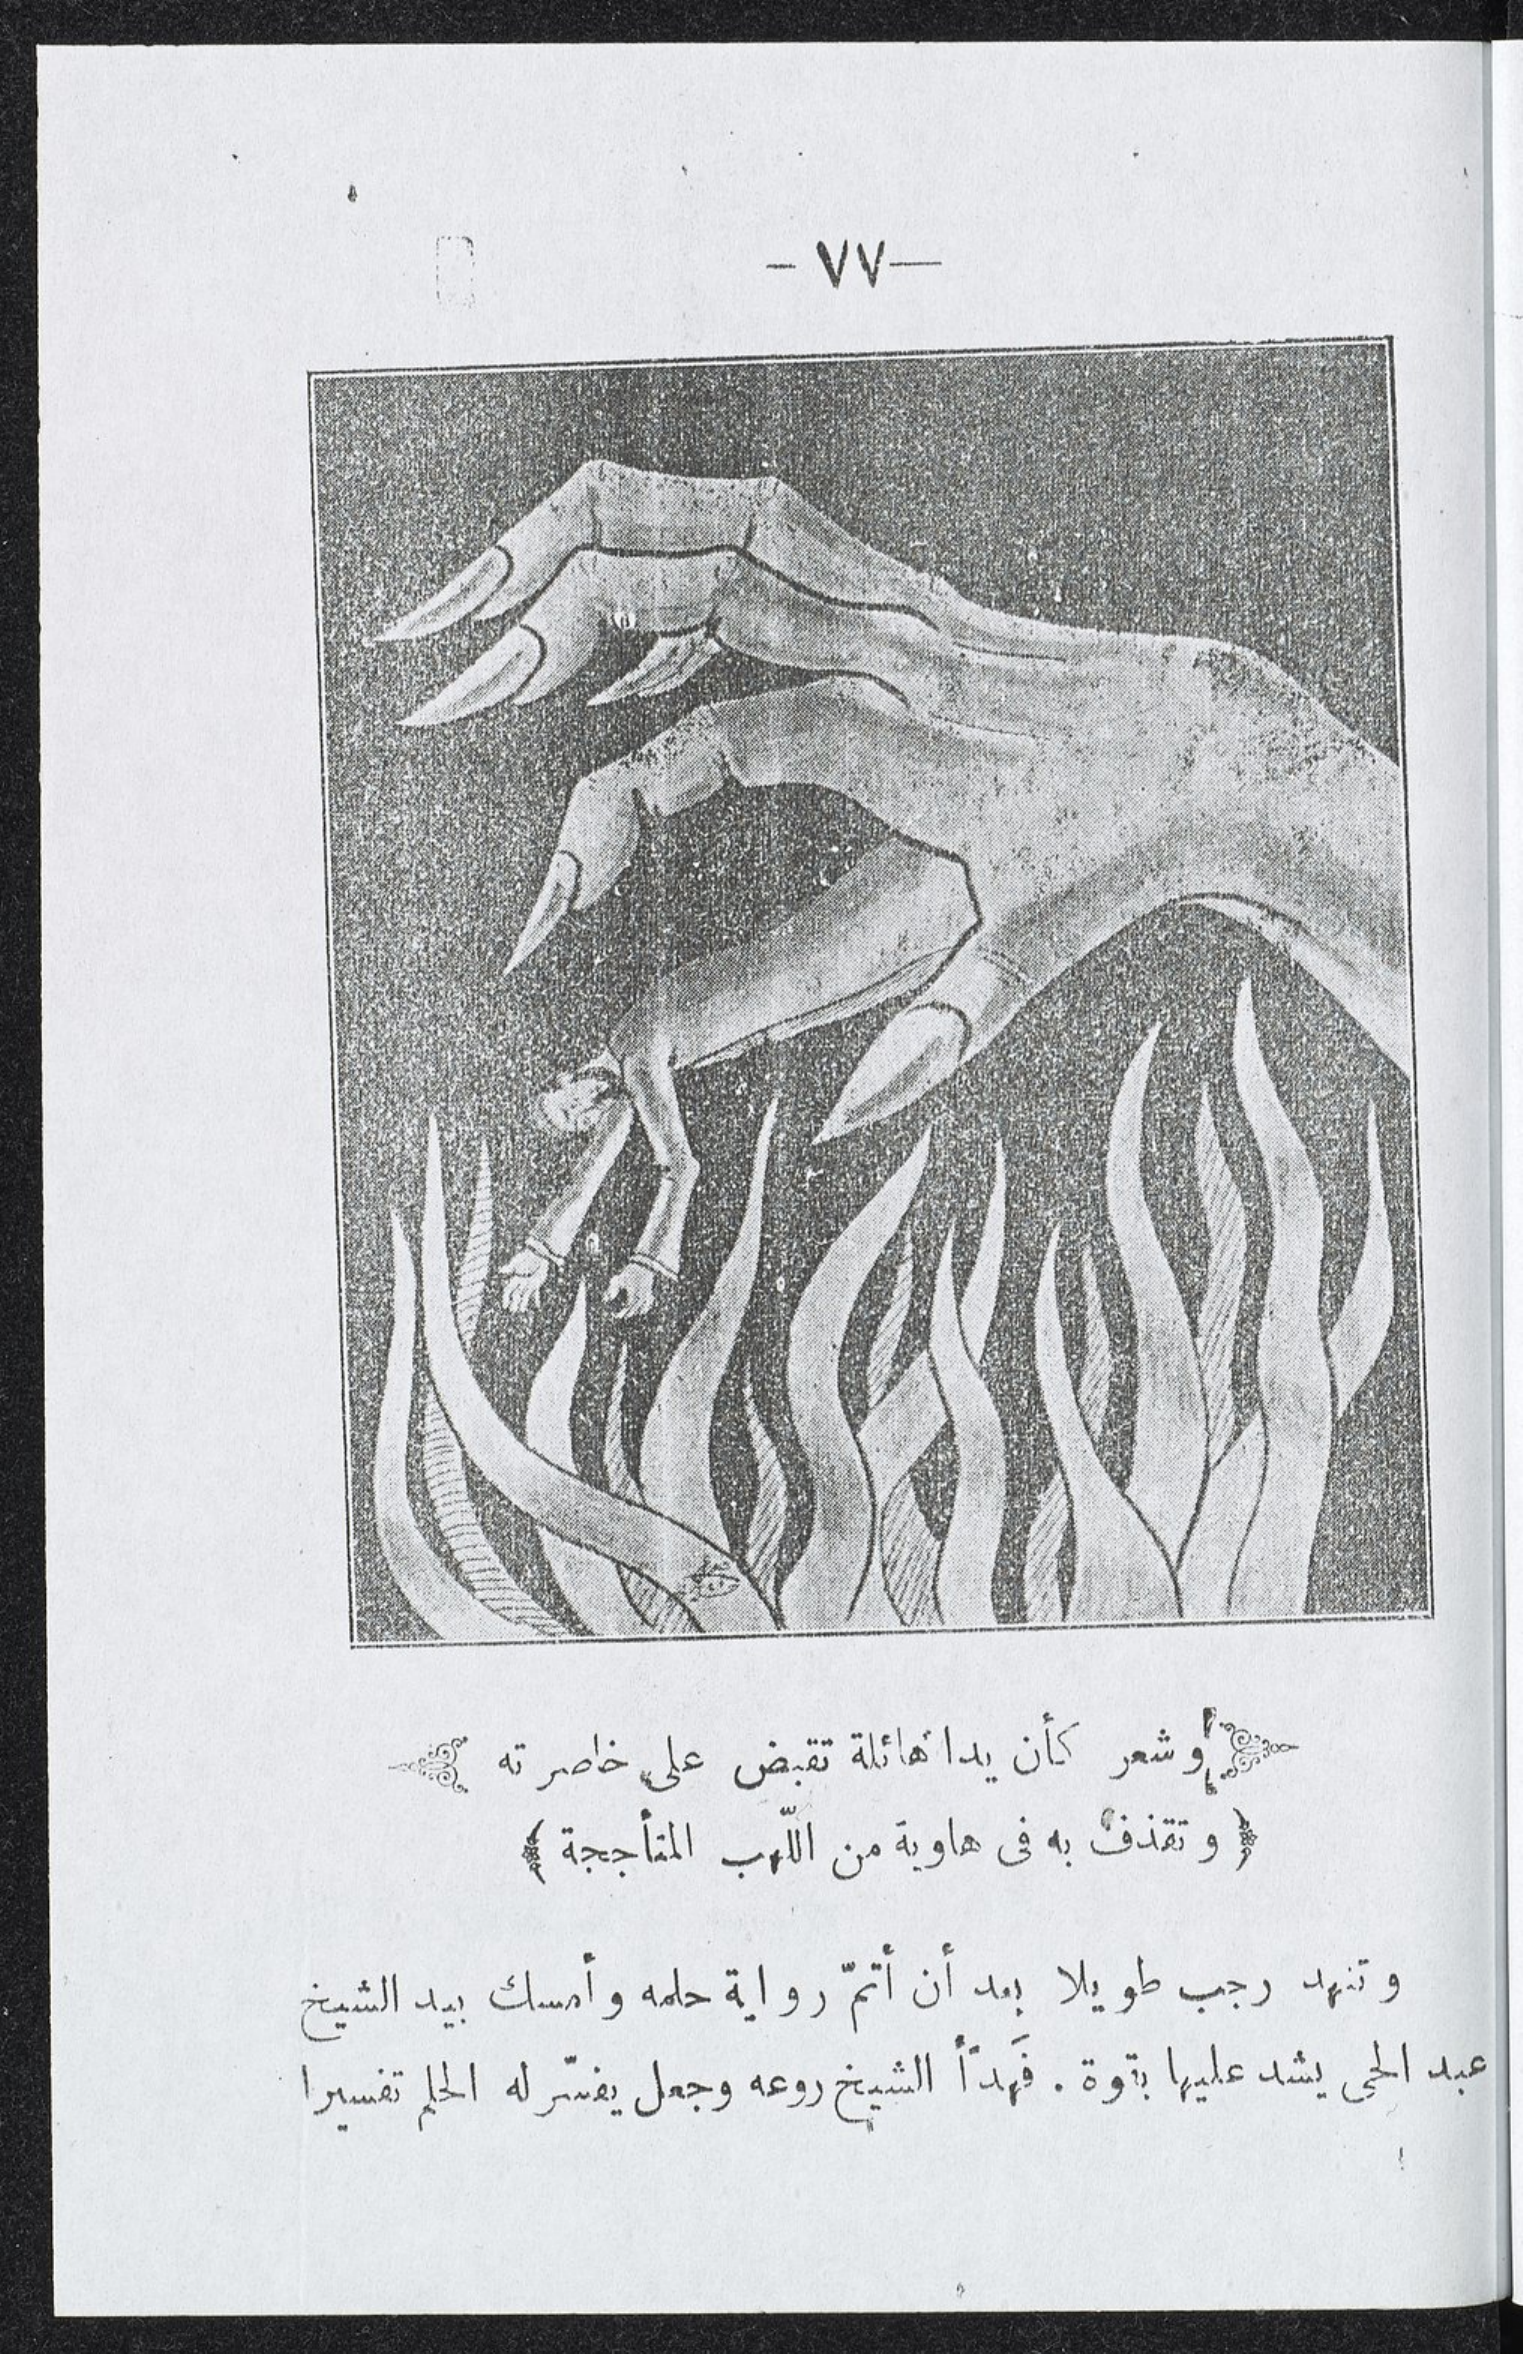 — ٧٧ —
وشعر كأن يدا هائلة تقبض على خاصر ته
﴿ وتقذف به فى هاوية من اللّهب المتأججة ﴾
وتنهد رجب طويلا بعد أن أتمّ رواية حلمه وأمسك بيد الشيخ
عبد الحى يشد عليها بقوة . فَهدّأ الشيخ روعه وجعل يفسّر له الحلم تفسيرا